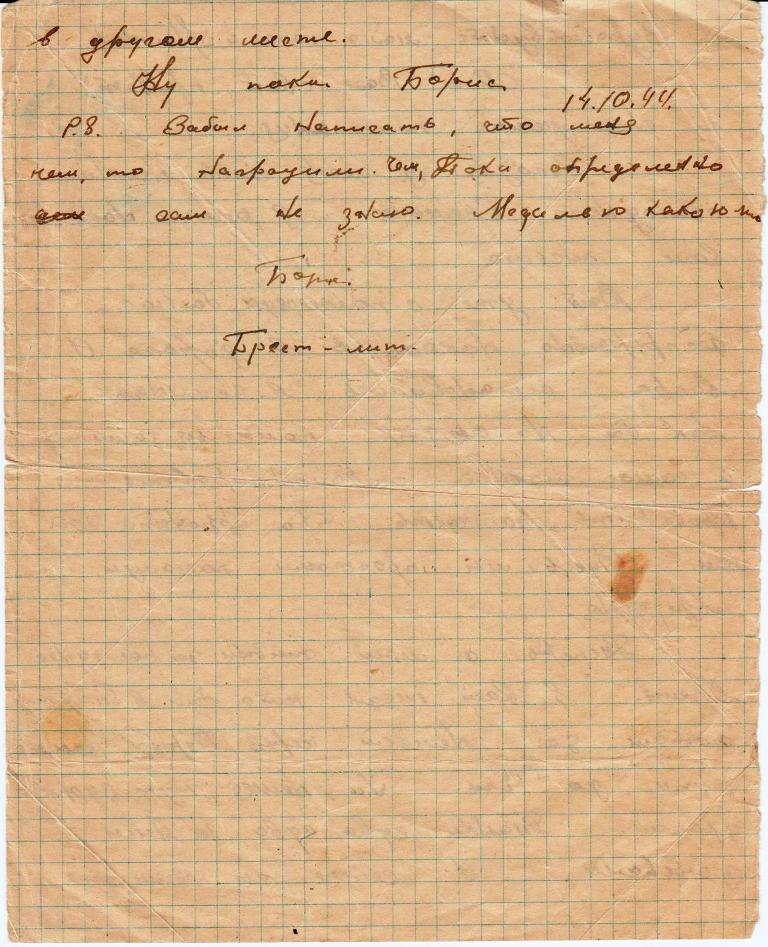 в другом месте.
Ну пока. Борис
14.10.44.
P.S. Забыл написать, что меня
чем, то наградили. Чем, пока определенно
сам не знаю. Медалью какою-то
Борис.
Брест-лит.